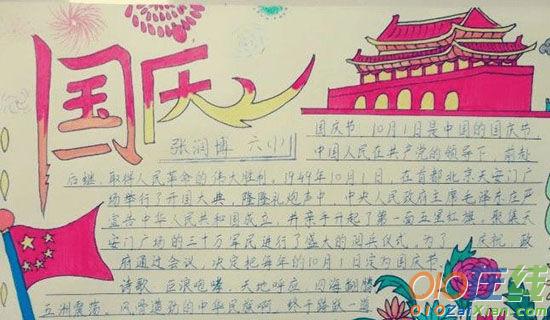 国庆
张润博 六(1)
国庆节 10月1日是中国的国庆节,
中国人民在共产党的领导下,前赴
后继,取得人民革命的伟大胜利,1949年10月1日,在首都北京天安门广
场举行了开国大典,隆隆礼炮声中,中央人民政府主席毛泽东庄严
宣告中华人民共和国成立,并亲手升起了第一面五星红旗,聚集天
安门广场的三十万军民进行了盛大的阅兵仪式,为了庆祝,政
府通过会议,决定把每年的10月1日定为国庆节。
诗歌:巨浪咆哮,天地呼应,四海翻腾
五洲震荡,风雷激励的中华民族啊,终于踏跃一道
在线
ZaiXian.com